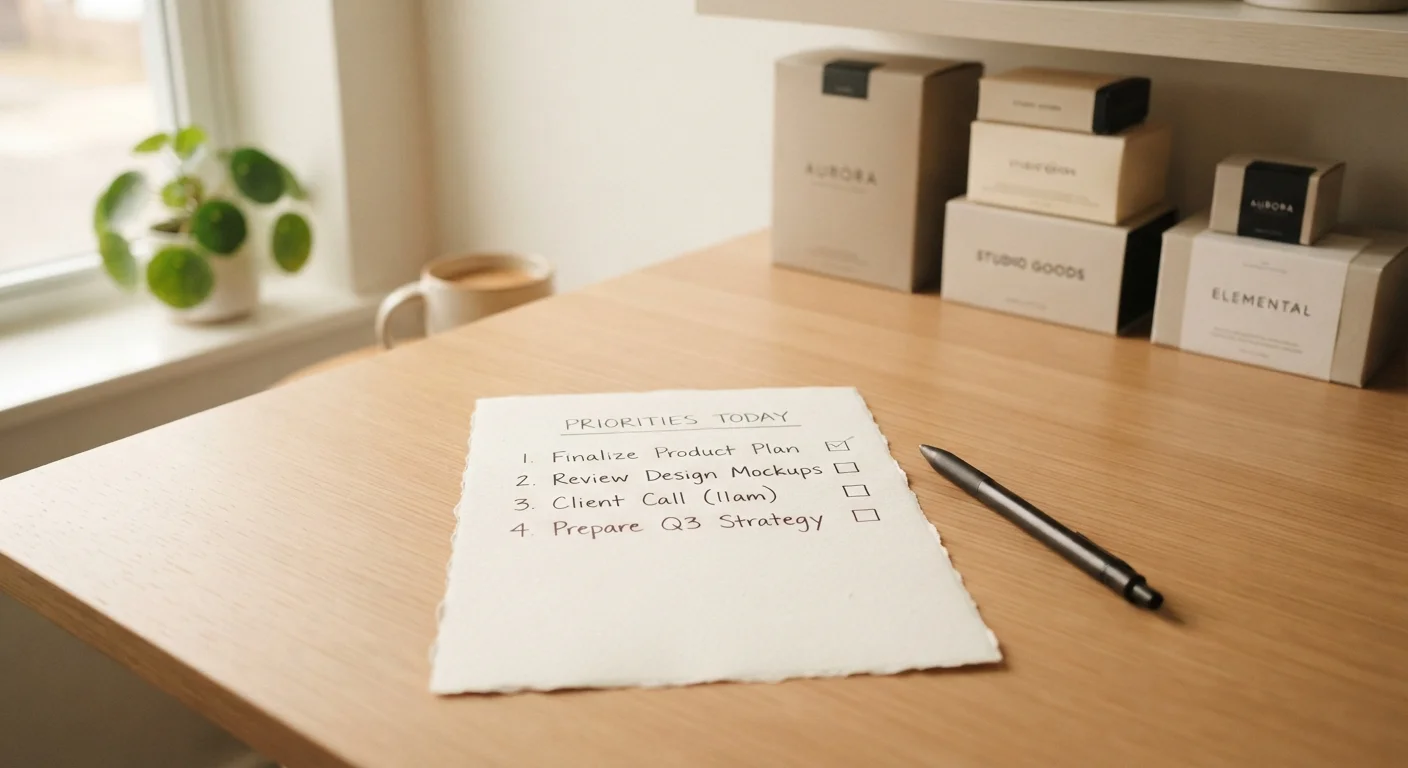 PRIORITIES TODAY
1. Finalize Product Plan
2. Review Design Mockups
3. Client Call (11am)
4. Prepare Q3 Strategy
AURORA
STUDIO GOODS
STUDIO GOODS
AURORA
ELEMENTAL